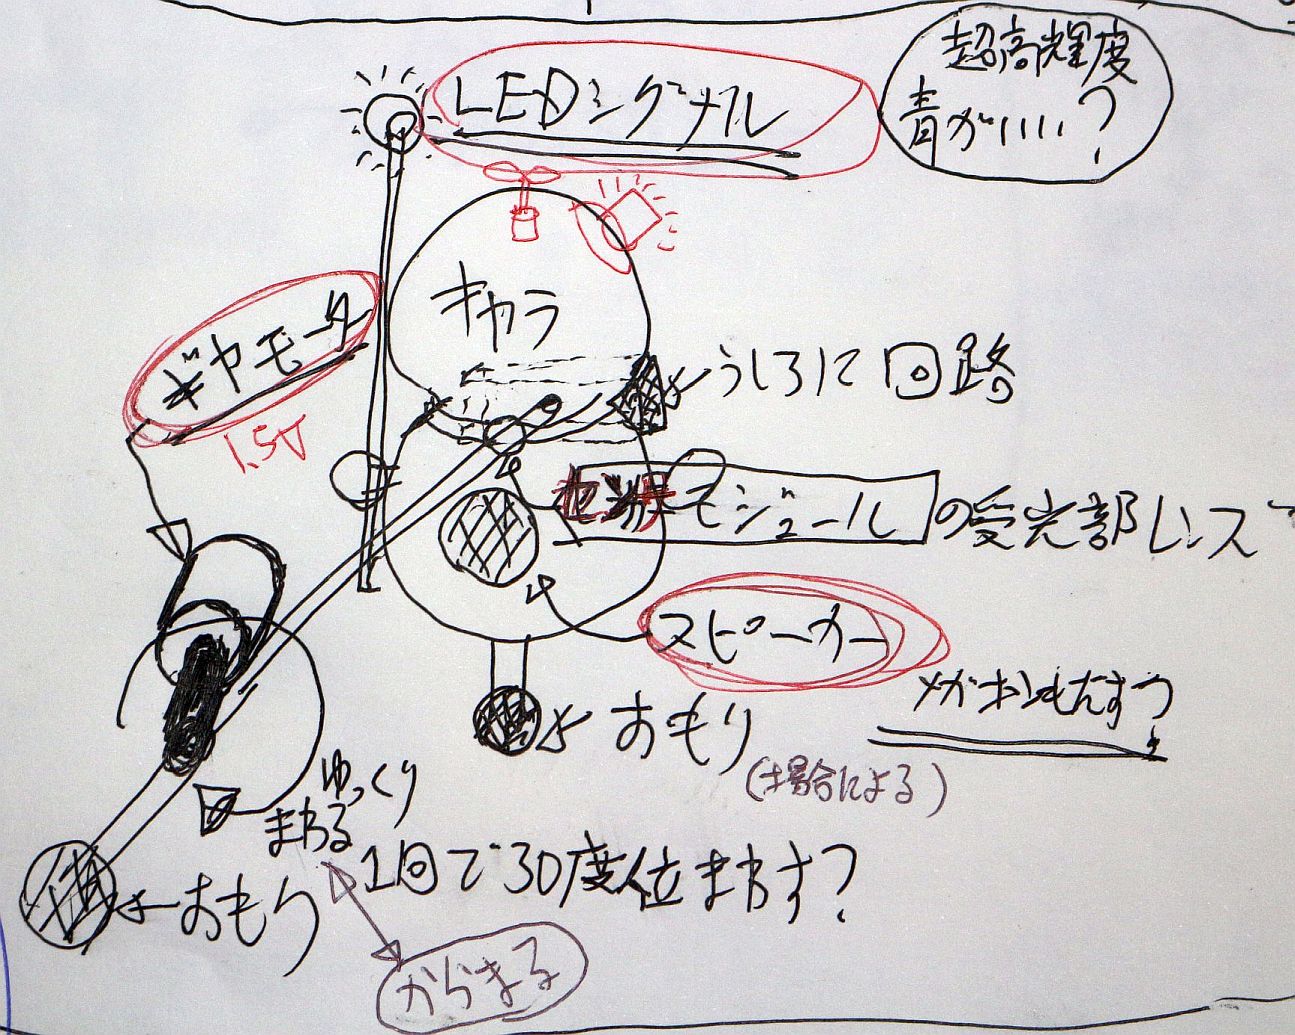 超高輝度
青がいい?
LEDシグナル
キャラ
ギヤモータ
1.5V
うしろに回路
モジュールの受光部レンズ
スピーカー
おもり
(場合による)
ゆっくり
まわる
1回で30度位まわす?
おもり
からまる